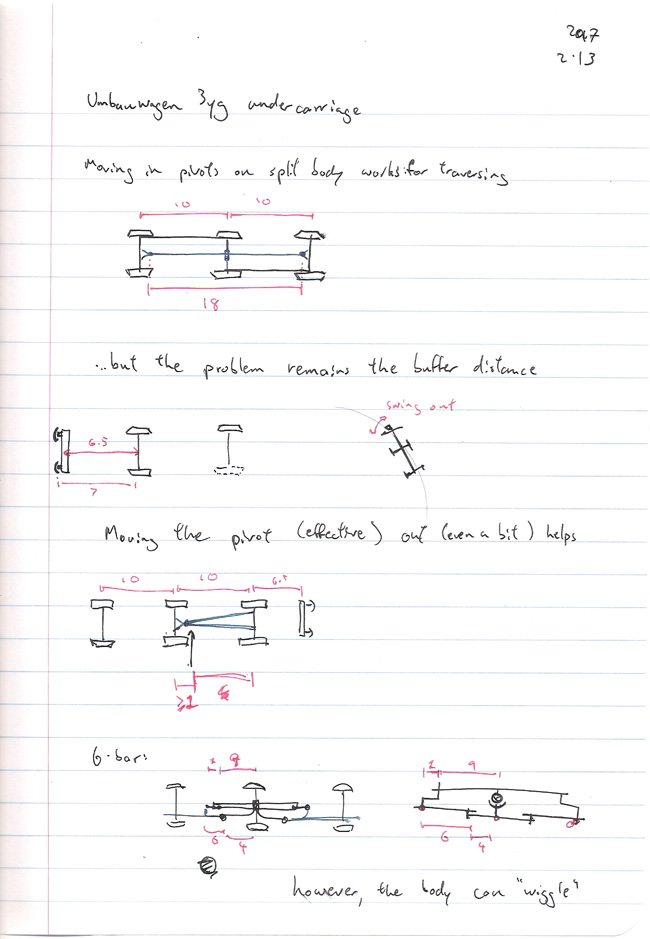 2017
2.13
Umbauwagen 3yg undercarriage
Moving in pivots on split body works for traversing
10 10
18
...but the problem remains the buffer distance
swing out
6.5
7
Moving the pivot (effective) out (even a bit) helps
10 10 6.5
≥1
6-bar:
1 9 1 9
6 4 6 4
however, the body can "wiggle"